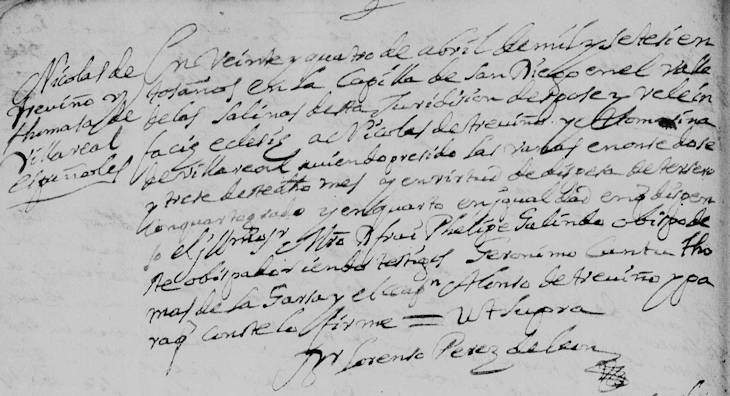 Nicolas de
treviño y
thomasa de
Villareal
españoles
En veinte y quatro de abril de mil y setesien
tos años en la Capilla de San Diego en el valle
de las Salinas desta Juridision despose y vele in
facie eclesie a Nicolas de treviño y a Thomasina
de villareal aviendo presedido las en onse dose
y trese de mes y en virtud de dispensa de tersero
con quarto grado y en quarto en igualdad en q dispen
so el Sr Mro D frai Phelipe Galindo obispo de
ste obispado siendo testigos Geronimo Cantu tho
mas de la Garsa y el capn Alonso de treviño y pa
raq conste lo firme = Ut Supra
Br Lorenso Perez de leon